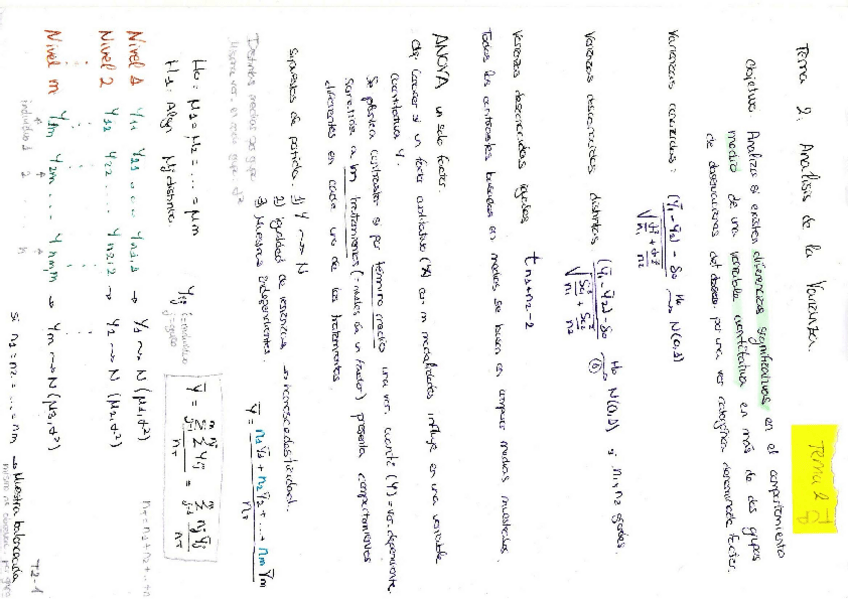 Tema 2. Análisis de la Varianza.
Tema 2
Objetivo: Analizar si existen diferencias significativas en el comportamiento
medio de una variable cuantitativa en más de dos grupos
de observaciones del dataset por una var categórica denominada factor.
Varianzas conocidas: (Ȳ1 - Ȳ2) - δ0 / √(σ²/n1 + σ²/n2) H0 ~> N(0,1)
Varianzas desconocidas distintas (Ȳ1 - Ȳ2) - δ0 H0 ~> N(0,1) si n1, n2
Varianzas desconocidas iguales t n1+n2-2
Todos los contrastes basados en medias se basan en comparar medias muestrales.
ANOVA un solo factor.
obj: conocer si un factor cualitativo (X) con m modalidades influye en una variable
cuantitativa Y.
Se plantea contrastar si por término medio una var. cuanti (Y) = var. dependiente
sometida a m tratamientos (= niveles de un factor) presenta comportamientos
diferentes en cada uno de los tratamientos.
supuestos de partida: 1) Y ~> N
2) igualdad de varianzas ~> homocedasticidad.
3) Muestras independientes.
Distintas medias por grupo
Misma var. en cada grupo σ²
Ȳ = n1Ȳ1 + n2Ȳ2 + ... + nmȲm / nT
H0: μ1 = μ2 = ... = μm
H1: Algún μj distinta.
Yij i=individuo
j=grupo
Ȳ = Σ Σ Yij / nT = Σ nj Ȳj / nT
nT = n1 + n2 + ... +
Nivel 1 Y11 Y21 ... Yn1,1 → Y1 ~> N(μ1, σ²)
Nivel 2 Y12 Y22 .... Yn2,2 → Y2 ~> N(μ2, σ²)
Nivel m Y1m Y2m ... Ynm,m → Ym ~>
individuo 1 2 .... n
si n1 = n2 = ... = nm → Muestra balanceada
mismo nº observac. por grupo
T2-1